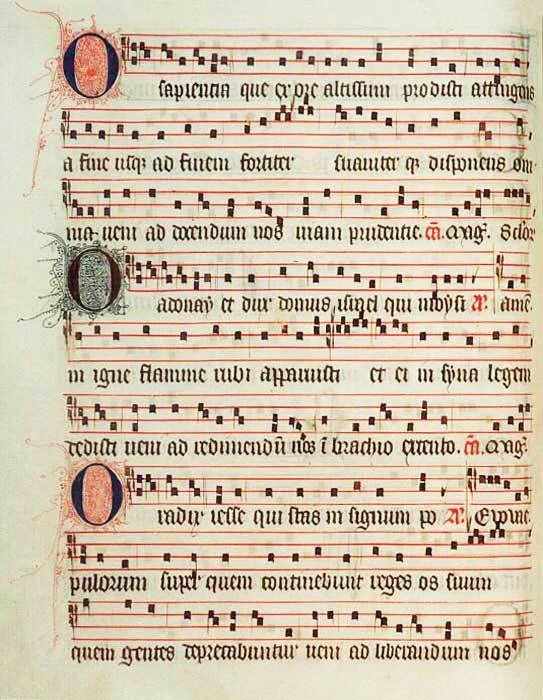 O sapientia que ex ore altissimi prodisti attingens
a fine usq; ad finem fortiter suauiter q; disponens om
nia ueni ad docendum nos uiam prudentie. cā. Mag̃.
O adonay et dux domus israel qui moysi
in igne flamme rubi apparuisti et ei in syna legem
dedisti ueni ad redimendū nos ī brachio extento. cā. Mag̃.
O radix iesse qui stas in signum po
pulorum super quem continebunt reges os suum
quem gentes deprecabuntur ueni ad liberandum nos